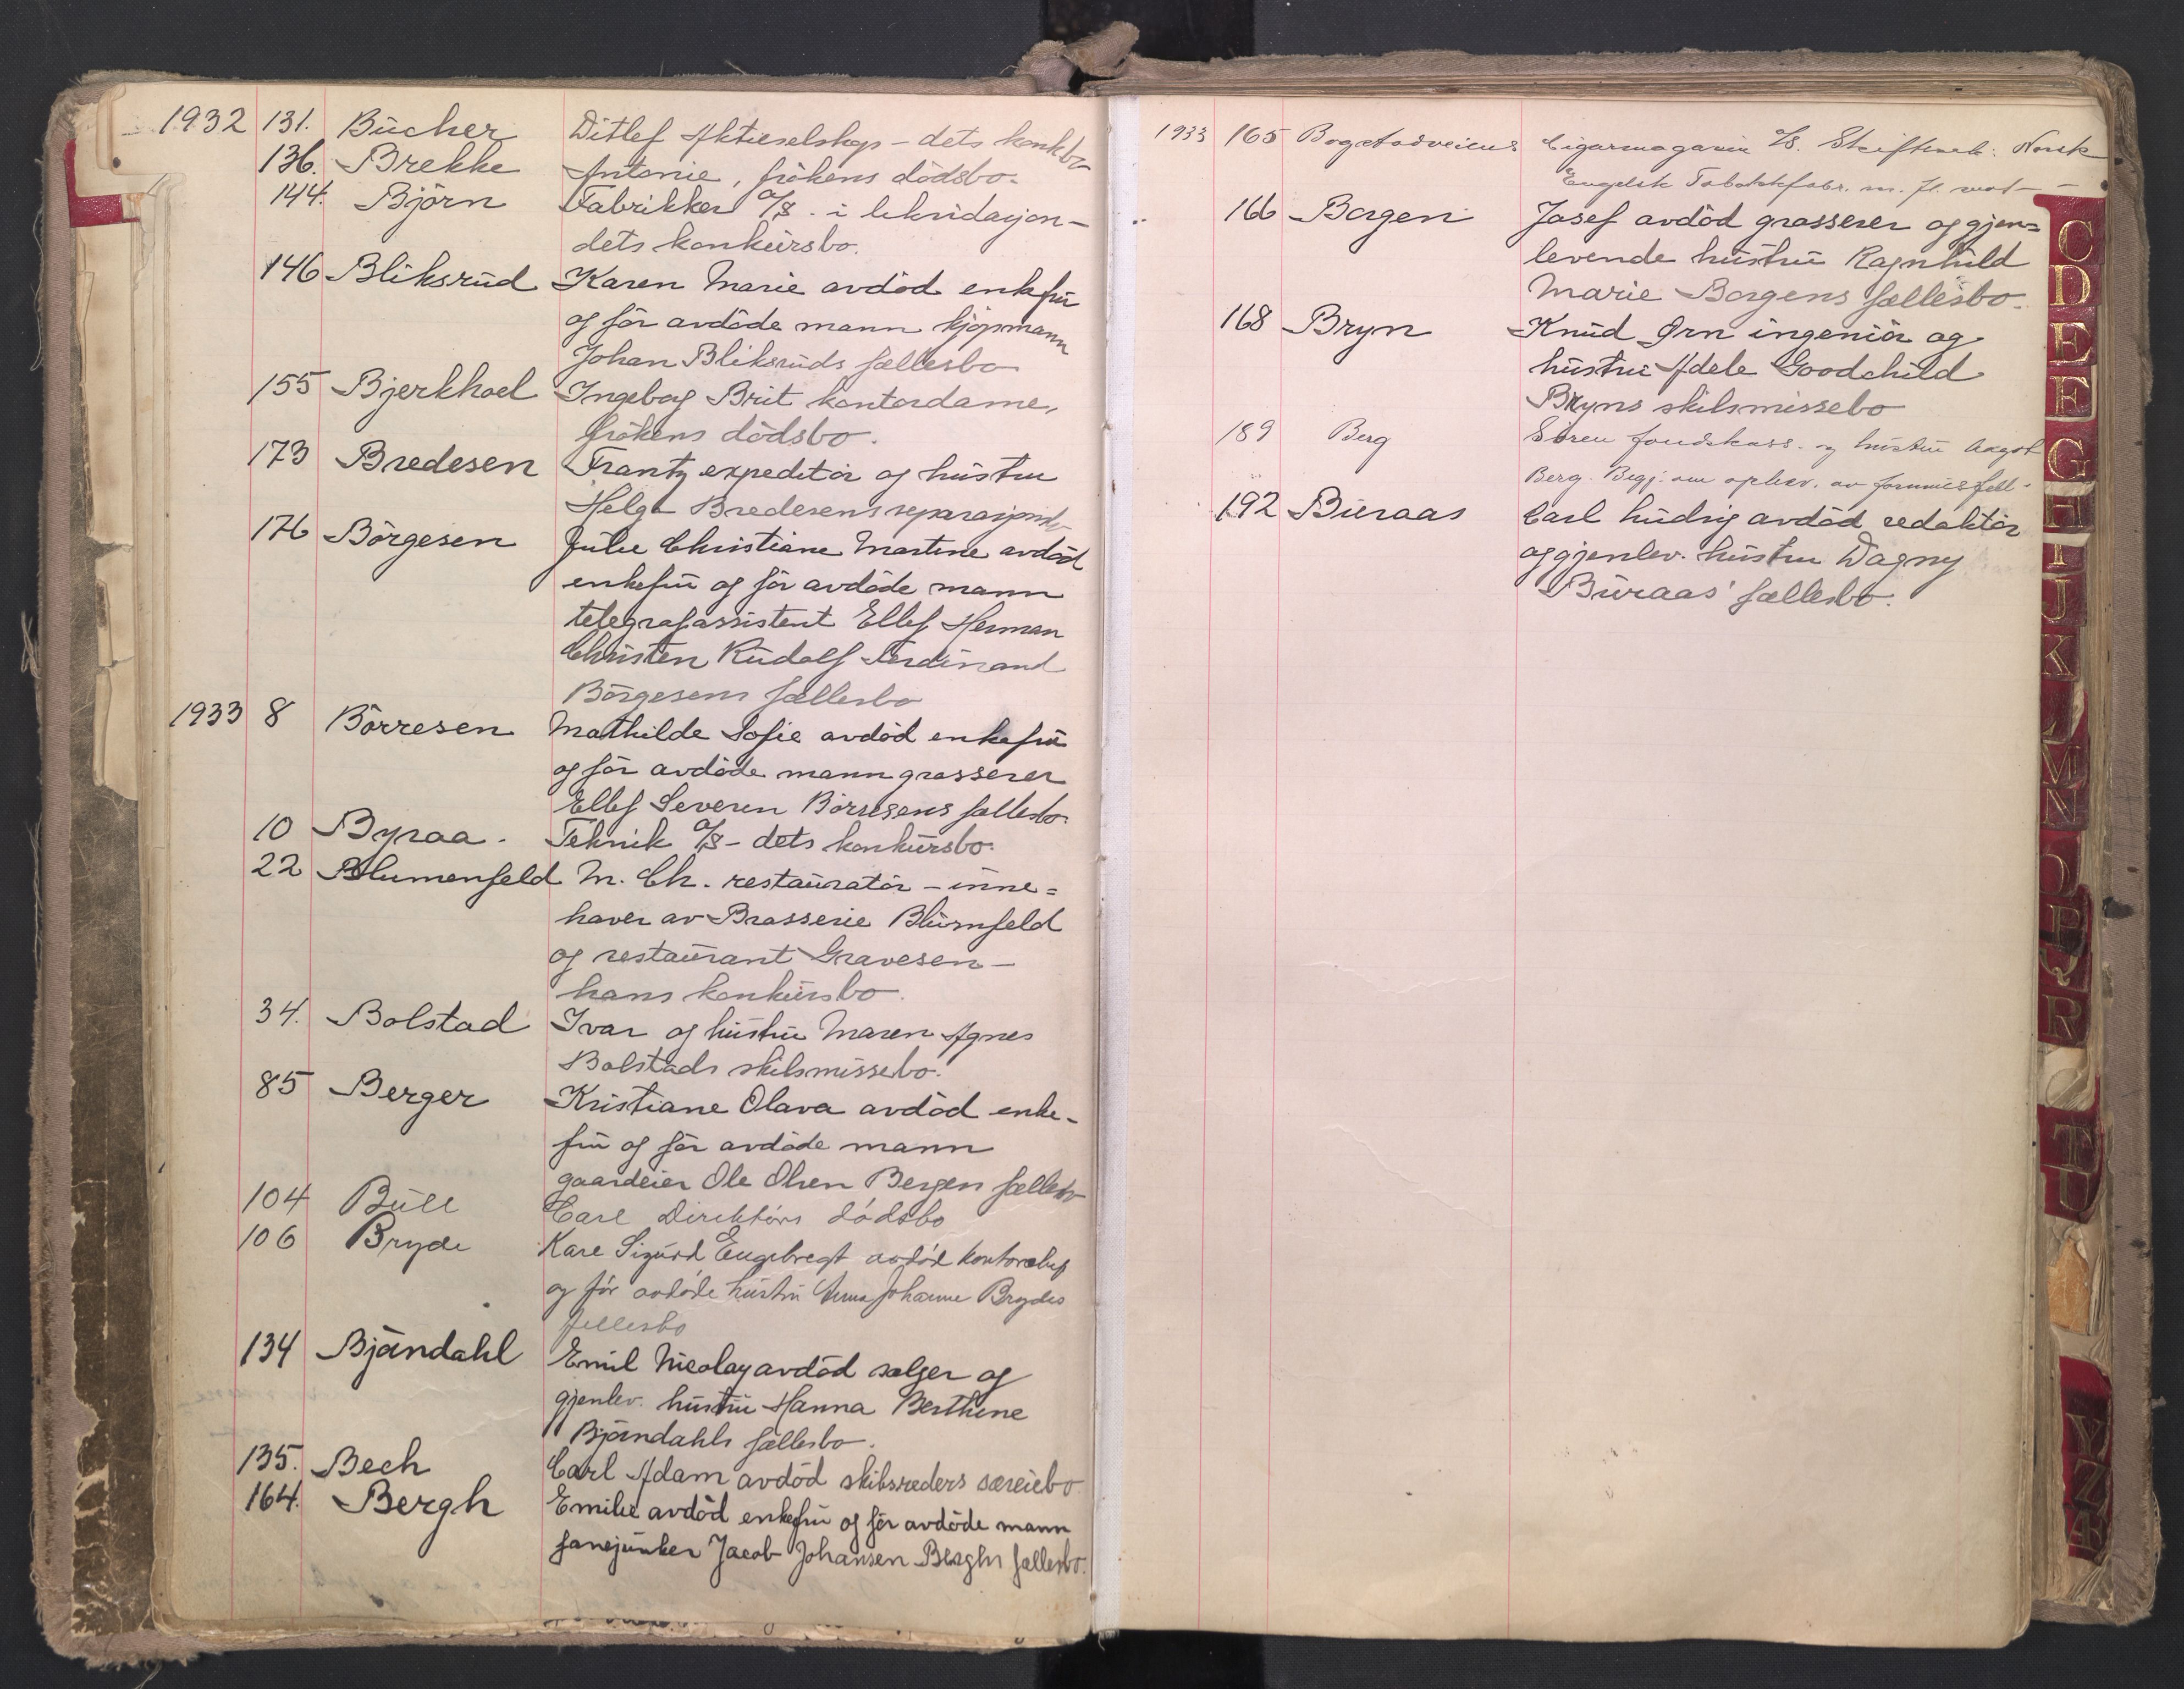 1932 131. Bücher Ditlef Aktieselskap - dets konkbo
136. Brekke Antonie, frökens dödsbo.
144. Björn Fabrikker A/S. i likvidasjon -
dets konkursbo.
146 Bliksrud Karen Marie avdöd enkefru
og för avdöde mann kjöpmann
Johan Bliksruds fællesbo
155 Bjerkhoel Ingeborg Brit kontordame,
frökens dödsbo.
173 Bredesen Frantz expeditör og hustru
Helga Bredesens separasjonsbo
176 Börgesen Julie Christiane Martine avdöd
enkefru og för avdöde mann
telegrafassistent Ellef Herman
Christen Rudolf Ferdinand
Börgesens fællesbo
1933 8 Börresen Mathilde Sofie avdöd enkefru
og för avdöde mann grosserer
Ellef Severin Börresens fællesbo.
10 Byraa. Teknik A/S - dets konkursbo.
22 Blumenfeld M. Ch. restauratör - inne=
haver av Brasserie Blumfeld
og restaurant Gravesen -
hans konkursbo.
34. Bolstad Ivar og hustru Maren Agnes
Bolstads skilsmissebo.
85 Berger Kristiane Olava avdöd enke-
fru og för avdöde mann
gaardeier Ole Olsen Bergers fællesbo
104 Bull Carl Direktörs dödsbo
106 Bryde Kare Sigurd Engebregt avdöd kontorchef
og för avdöde hustru Anna Johanne Brydes
fellesbo
134 Bjöndahl Emil Nicolay avdöd selger og
gjenlev. hustru Hanna Berthine
Bjöndahls fællesbo.
135. Bech Carl Adam avdöd skibsreders særeiebo
164. Bergh Emilie avdöd enkefru og för avdöde mann
fanejunker Jacob Johansen Berghs fællesbo.
1933 165 Bogstadveiens Cigarmagasin A/S. Skiftesak: Norsk
Engelsk Tobakkfabr. m. fl. mot -
166 Borgen Josef avdöd grosserer og gjen=
levende hustru Ragnhild
Marie Borgens fællesbo.
168 Bryn Knud Ørn ingeniör og
hustru Adele Goodchild
Bryns skilsmissebo
189 Berg Sören fondskass. og hustru Aagot
Berg. Begj. om ophev. av formuesfell.
192 Buraas Carl Ludvig avdöd redaktör
og gjenlev. hustru Dagny
Buraas' fællesbo.
C
D
E
F
G
H
I
J
K
L
M
N
O
P
Q
R
T
U
Y
Z
Æ